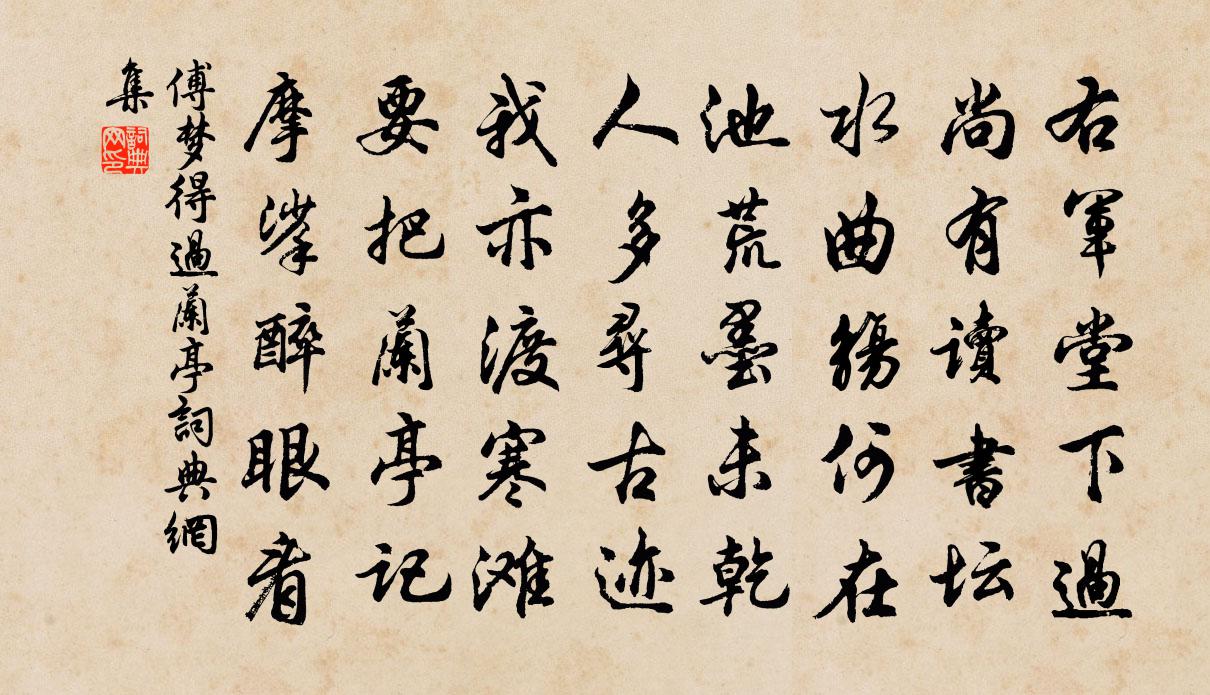 右军堂下過
尚有讀書坛
水曲觴何在
池荒墨未乾
人多尋古迹
我亦渡寒滩
要把蘭亭记
摩挲醉眼看
傅梦得過蘭亭詞典網
集
詞典
网印